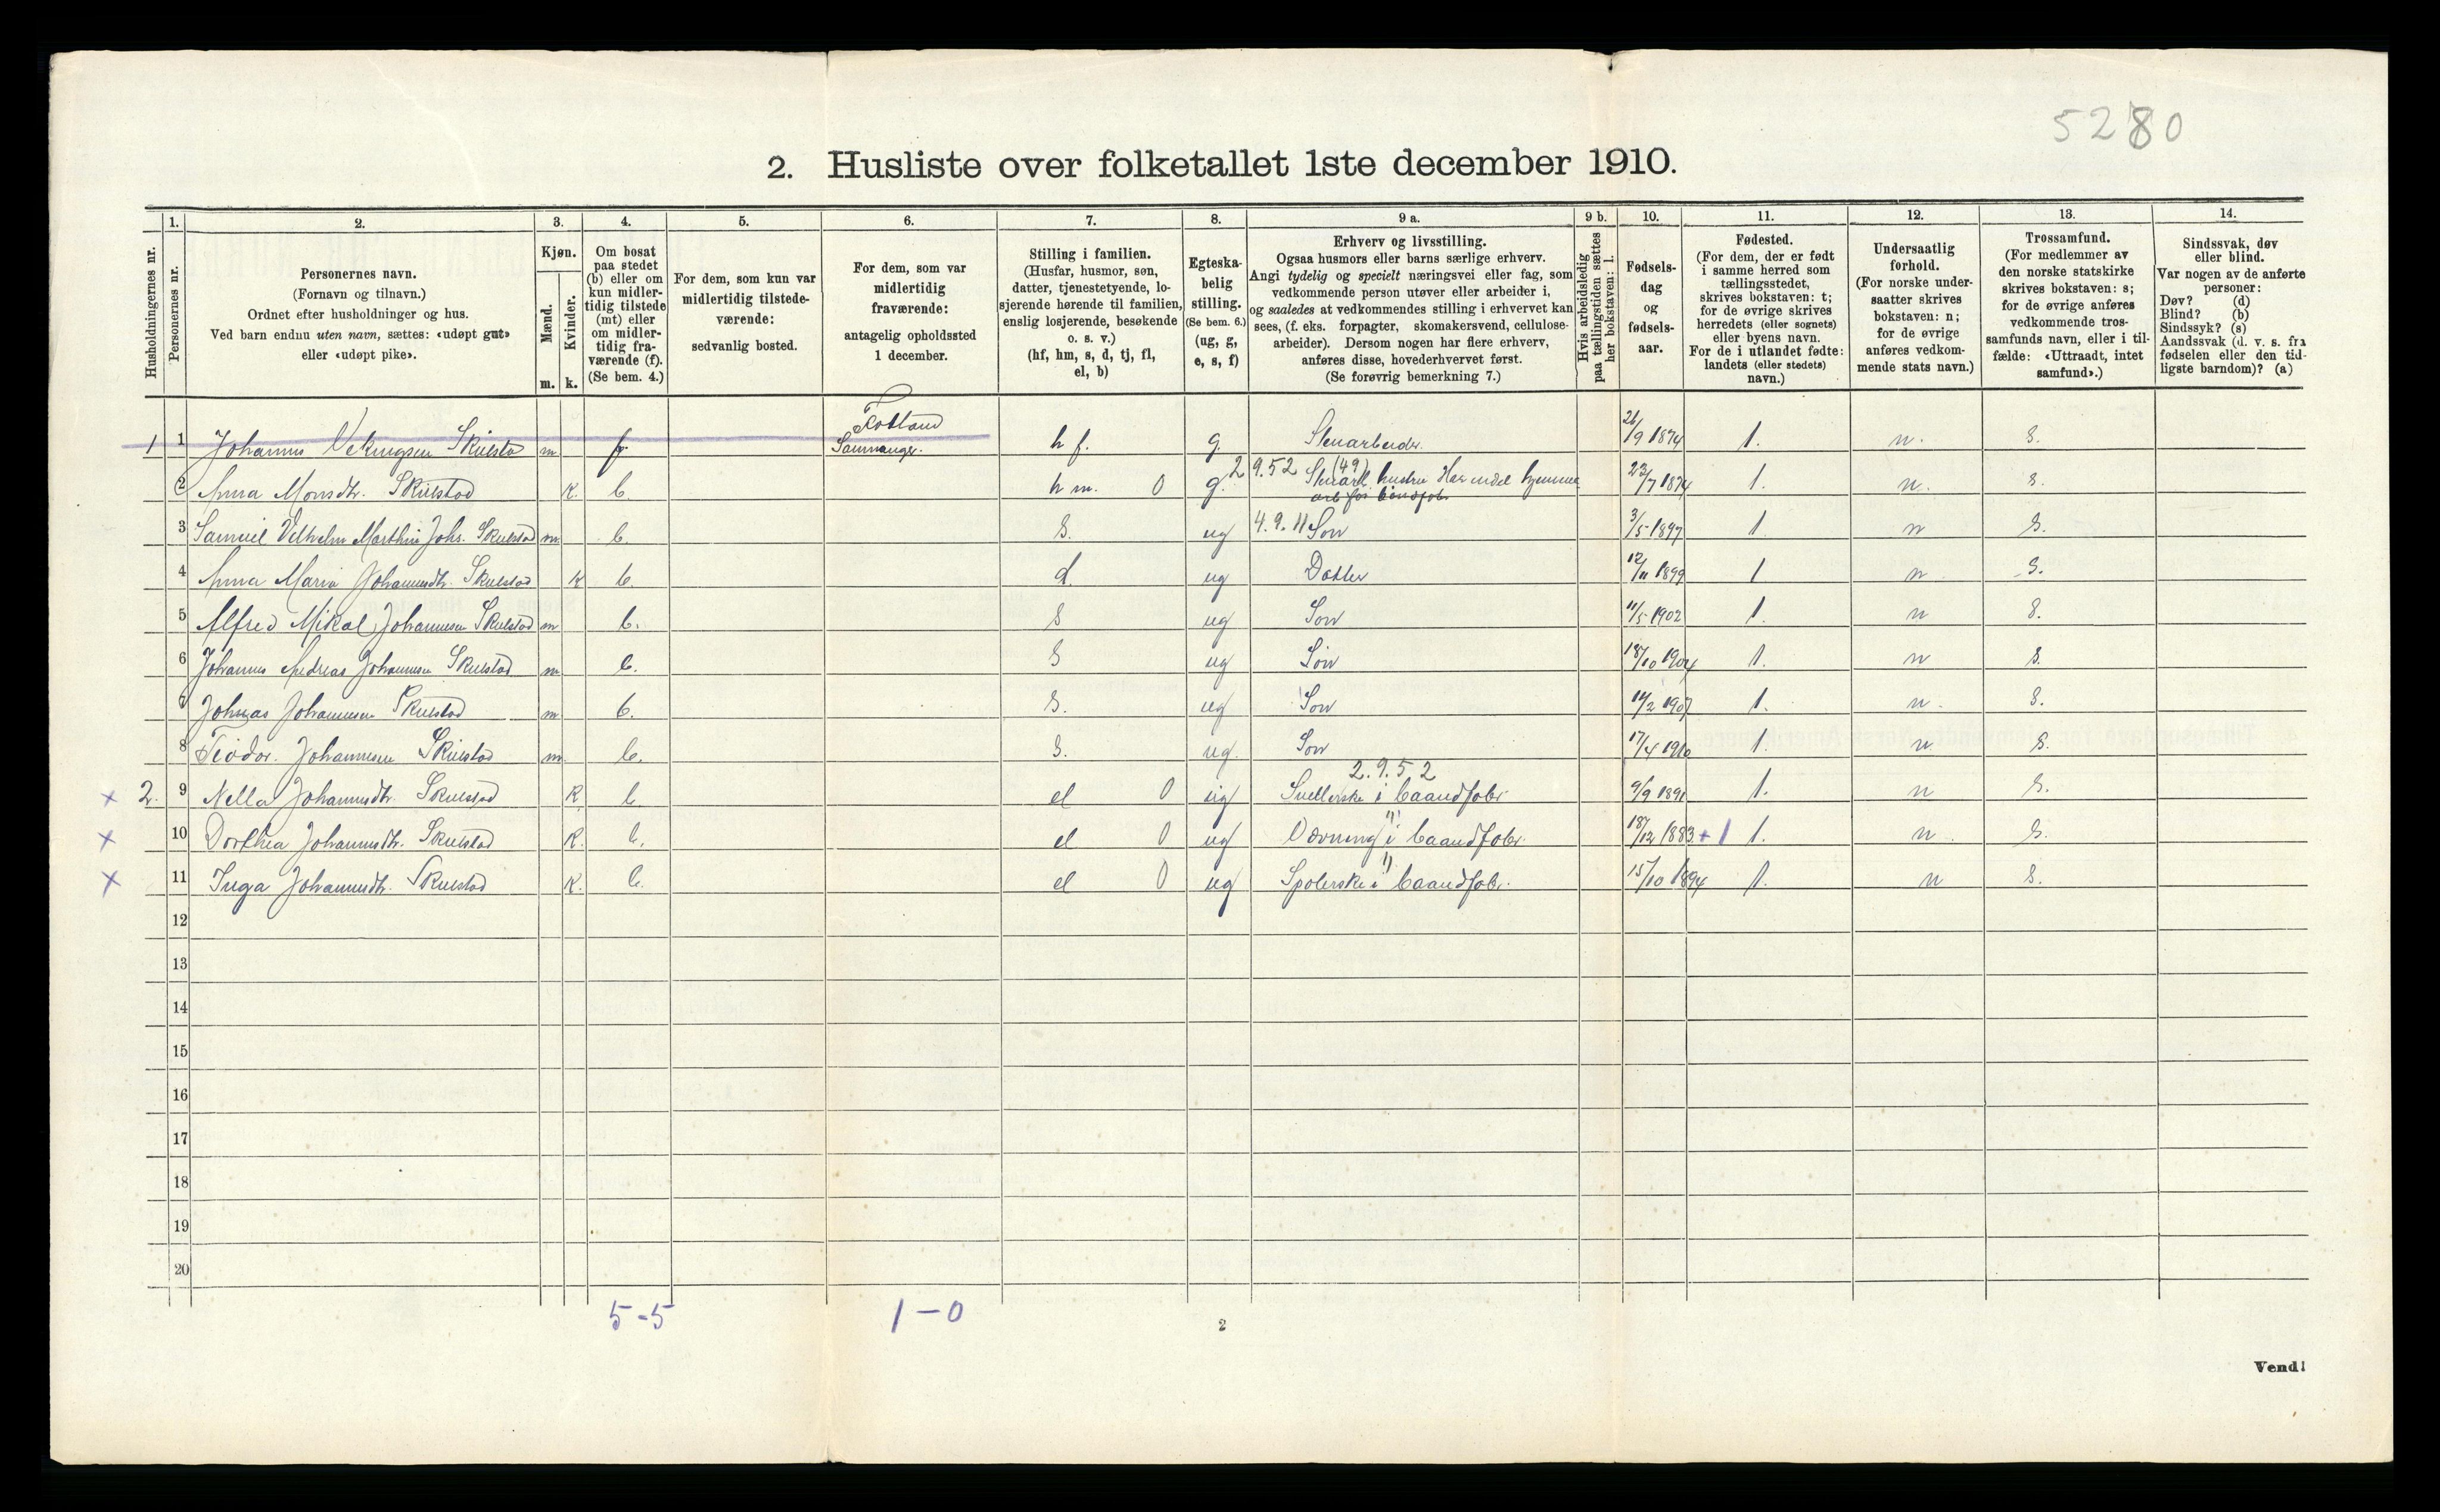 5280
2. Husliste over folketallet 1ste december 1910.
Husholdningernes nr.
1.
Personernes nr.
2.
Personernes navn.
(Fornavn og tilnavn.)
Ordnet efter husholdninger og hus.
Ved barn endnu uten navn, sættes: «udøpt gut»
eller «udøpt pike».
3.
Kjøn.
Mænd.
Kvinder.
m. k.
4.
Om bosat
paa stedet
(b) eller om
kun midler-
tidig tilstede
(mt) eller
om midler-
tidig fra-
værende (f).
(Se bem. 4.)
5.
For dem, som kun var
midlertidig tilstede-
værende:
sedvanlig bosted.
6.
For dem, som var
midlertidig
fraværende:
antagelig opholdssted
1 december.
7.
Stilling i familien.
(Husfar, husmor, søn,
datter, tjenestetyende, lo-
sjerende hørende til familien,
enslig losjerende, besøkende
o. s. v.)
(hf, hm, s, d, tj, fl,
el, b)
8.
Egteska-
belig
stilling.
(Se bem. 6.)
(ug, g,
e, s, f)
9 a.
Erhverv og livsstilling.
Ogsaa husmors eller barns særlige erhverv.
Angi tydelig og specielt næringsvei eller fag, som
vedkommende person utøver eller arbeider i,
og saaledes at vedkommendes stilling i erhvervet kan
sees, (f. eks. forpagter, skomakersvend, cellulose-
arbeider). Dersom nogen har flere erhverv,
anføres disse, hovederhvervet først.
(Se forøvrig bemerkning 7.)
9 b.
Hvis arbeidsledig
paa tællingstiden sættes
her bokstaven: l.
10.
Fødsels-
dag
og
fødsels-
aar.
11.
Fødested.
(For dem, der er født
i samme herred som
tællingsstedet,
skrives bokstaven: t;
for de øvrige skrives
herredets (eller sognets)
eller byens navn.
For de i utlandet fødte:
landets (eller stedets)
navn.)
12.
Undersaatlig
forhold.
(For norske under-
saatter skrives
bokstaven: n;
for de øvrige
anføres vedkom-
mende stats navn.)
13.
Trossamfund.
(For medlemmer av
den norske statskirke
skrives bokstaven: s;
for de øvrige anføres
vedkommende tros-
samfunds navn, eller i til-
fælde: «Uttraadt, intet
samfund».)
14.
Sindssvak, døv
eller blind.
Var nogen av de anførte
personer:
Døv? (d)
Blind? (b)
Sindssyk? (s)
Aandssvak (d. v. s. fra
fødselen eller den tid-
ligste barndom)? (a)
1 1 Johannes Skulstad m f. Samnanger. h f. g. Stenarbeider. 26/9 1874 t. n. s.
2 Anna Monsdtr. Skulstad k. b. h m. 0 g. 2 9.52 (49) Stenarb. hustru Har endel hjemme 23/7 1874 t. n. s.
arb for baandfabr
3 Samuel Vilhelm Marthin Johs. Skulstad m b. s. ug 4.9.11 Søn 3/5 1897 t n s.
4 Anna Maria Johannesdtr. Skulstad k b. d. ug Datter 12/11 1899 t n s.
5 Alfred Mikal Johannesen Skulstad m b. s ug Søn 11/5 1902 t. n s.
6 Johannes Andreas Johannesen Skulstad m b. s ug Søn 18/10 1904 t. n s.
7 Johnas Johannesen Skulstad m b. s. ug Søn 14/2 1907 t. n. s.
8 Teodor. Johannesen Skulstad m. b. s. ug. Søn 17/4 1910 t. n s.
2.9.52
x 2. 9 Nella Johannesdtr. Skulstad k b el 0 ug i baandfabr 9/9 1891 t. n s.
x 10 Dorthea Johannesdtr. Skulstad k. b. el 0 ug i baandfabr. 18/12 1883 + 1 t. n s.
x 11 Inga Johannesdtr. Skulstad k. b. el 0 ug Spolerske i baandfabr. 15/10 1894 t. n s.
12
13
14
15
16
17
18
19
20
5-5 1-0
2
Vend!